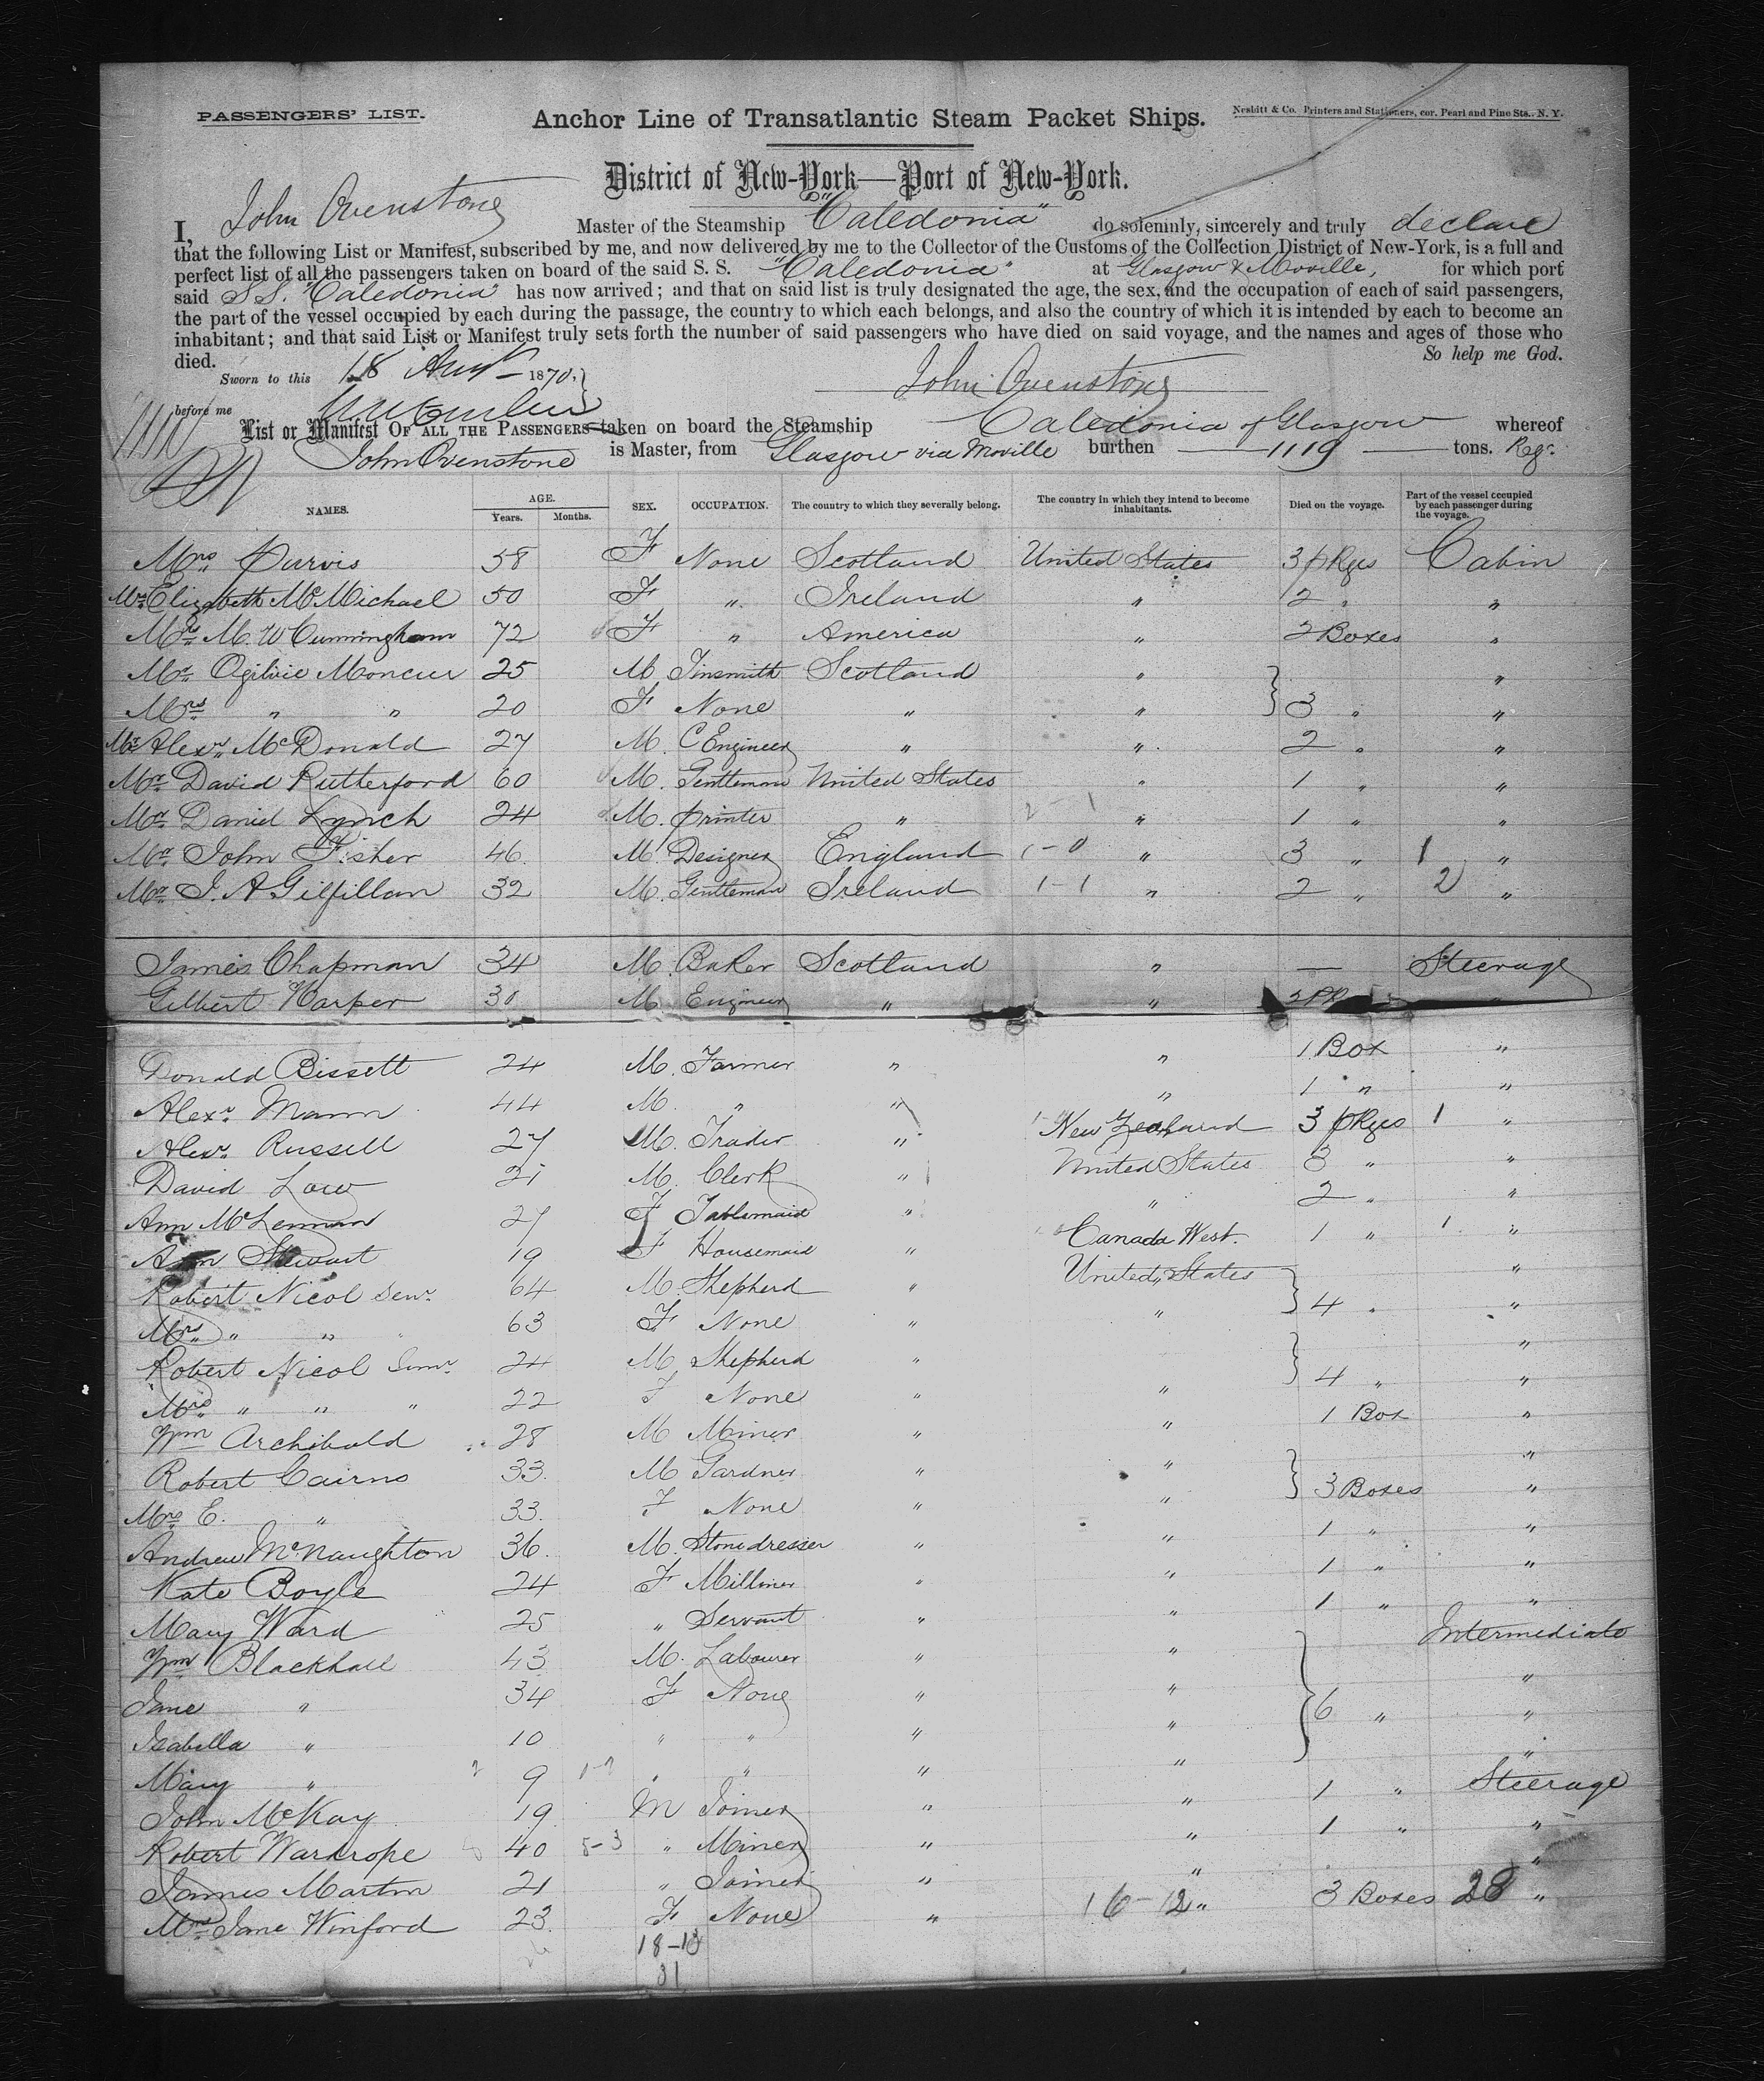 PASSENGERS' LIST.
Anchor Line of Transatlantic Steam Packet Ships.
Nesbitt & Co. Printers and Stationers, cor. Pearl and Pine Sts., N. Y.
District of New-York—Port of New-York.
I, John Ovenstone Master of the Steamship "Caledonia" do solemnly, sincerely and truly declare
that the following List or Manifest, subscribed by me, and now delivered by me to the Collector of the Customs of the Collection District of New-York, is a full and
perfect list of all the passengers taken on board of the said S. S. "Caledonia" at Glasgow & Moville, for which port
said S.S. "Caledonia" has now arrived; and that on said list is truly designated the age, the sex, and the occupation of each of said passengers,
the part of the vessel occupied by each during the passage, the country to which each belongs, and also the country of which it is intended by each to become an
inhabitant; and that said List or Manifest truly sets forth the number of said passengers who have died on said voyage, and the names and ages of those who
died. So help me God.
Sworn to this 18 1870, John Ovenstone
before me
List or Manifest OF ALL THE PASSENGERS taken on board the Steamship Caledonia of Glasgow whereof
John Ovenstone is Master, from Glasgow via Moville burthen 1119 tons. Regr.
NAMES. AGE. Years. Months. SEX. OCCUPATION. The country to which they severally belong. The country in which they intend to become inhabitants. Died on the voyage. Part of the vessel occupied by each passenger during the voyage.
Mrs Purvis 58 F None Scotland United States 3 pkgs Cabin
Mrs Elizabeth McMichael 50 F " Ireland " 2 " "
Mrs M. W Cunningham 72 F " America " 2 Boxes "
Mr Ogilvie Moncur 25 M Tinsmith Scotland " "
Mrs " " 20 F None " " 3 " "
Mr Alexr McDonald 27 M. C Engineer " " 2 " "
Mr David Rutterford 60 M. Gentleman United States " 1 " "
Mr Daniel Lynch 24 M. printer " " 1 " "
Mr John Fisher 46. M. Designer England 1-0 " 3 " 1 "
Mr J. A Gilfillan 32 M. Gentleman Ireland 1-1 " 2 " 2 "
James Chapman 34 M. Baker Scotland " — Steerage
Gilbert Harper 30 M. Engineer " " 2 Pk "
Donald Bissett 24 M. Farmer " " 1 Box "
Alexr. Mann 44 M. " " " 1 " "
Alexr. Russell 27 M. Trader " New Zealand 3 pkgs 1 "
David Low 21 M. Clerk " United States 3 " "
Ann McLennan 27 F Tablemaid " " 2 " "
Ann Stewart 19 F Housemaid " Canada West. 1 " 1 "
Robert Nicol Senr. 64 M. Shepherd " United States "
Mrs " " " 63 F None " " 4 " "
Robert Nicol Junr. 24 M Shepherd " "
Mrs " " " 22 F None " " 4 " "
Wm Archibald 28 M Miner " " 1 Box "
Robert Cairns 33. M Gardner " " "
Mrs E. " 33. F None " " 3 Boxes "
Andrew McNaughton 36. M. Stonedresser " " 1 " "
Kate Boyle 24 F Milliner " " 1 " "
Mary Ward 25 " Servant " " 1 " "
Wm Blackhall 43 M. Labourer " " Intermediate
Jane " 34 F None " " "
Isabella " 10 " " " " 6 " "
Mary " 9 " " " " "
John McKay 19 M Joiner " " 1 " Steerage
Robert Wardrope 40 5-3 " Miner " " 1 " "
James Martin 21 " Joiner " " "
Mrs Jane Winford 23. F None " 16-12 " 3 Boxes 28 "
18-13
31